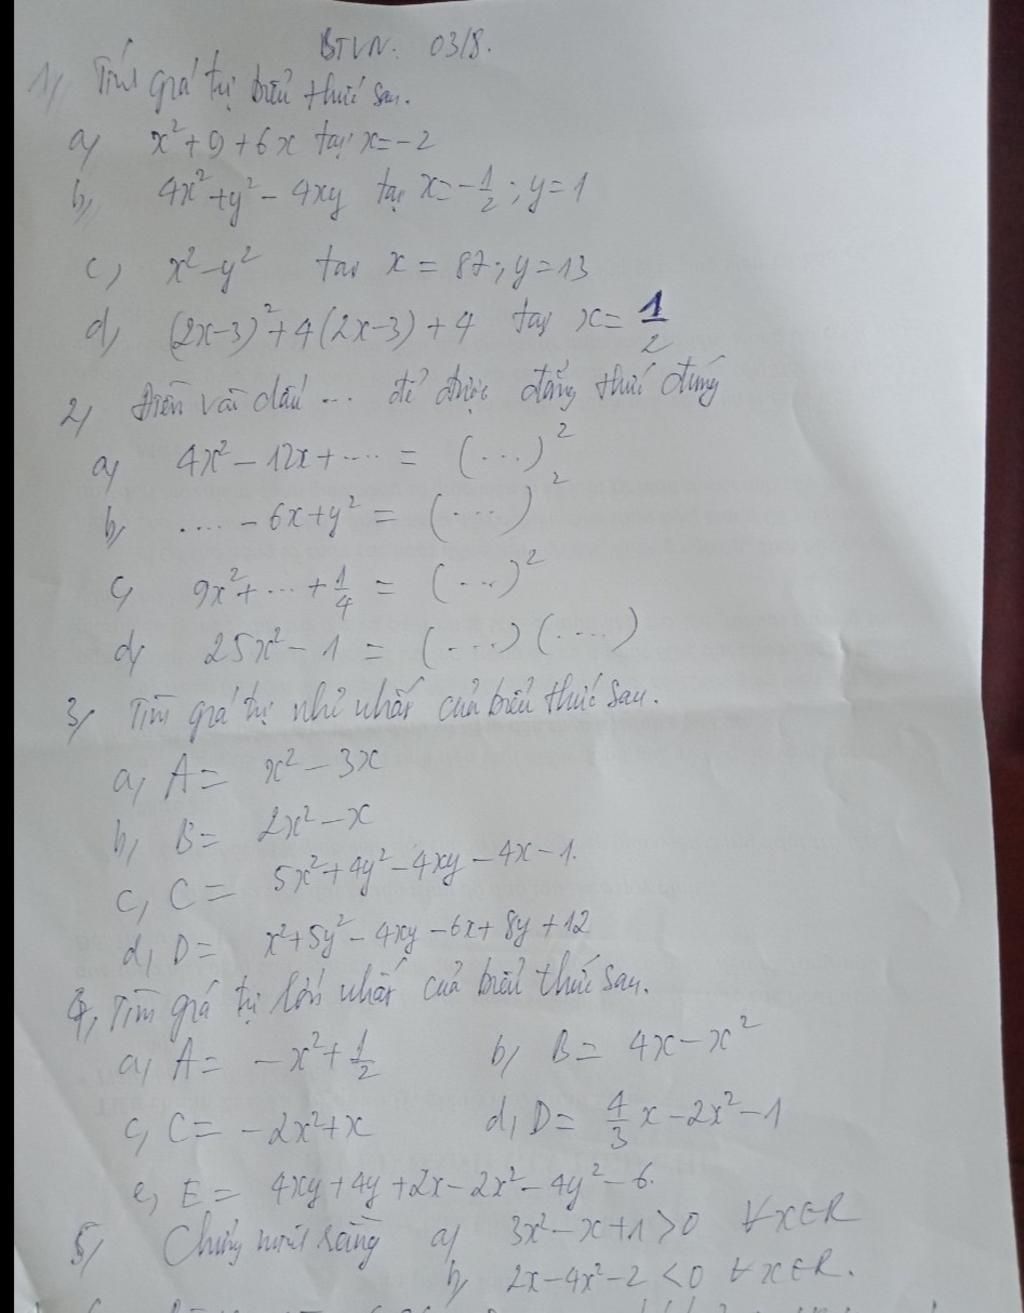 BTVN. 03/8.
1) Tính giá trị biểu thức sau.
a) x² + 9 + 6x tại x = -2
b) 4x² + y² - 4xy tại x = -1/2 ; y = 1
c) x² - y² tại x = 87 ; y = 13
d) (2x-3)² + 4(2x-3) + 4 tại x = 1/2
2) Điền vào dấu ... để được đẳng thức đúng
a) 4x² - 12x + .... = (...)²
b) .... - 6x + y² = (....)²
c) 9x² + ... + 1/4 = (...)²
d) 25x² - 1 = (...) (....)
3) Tìm giá trị nhỏ nhất của biểu thức sau.
a, A = x² - 3x
b, B = 2x² - x
c, C = 5x² + 4y² - 4xy - 4x - 1.
d, D = x² + 5y² - 4xy - 6x + 8y + 12
4, Tìm giá trị lớn nhất của biểu thức sau.
a, A = -x² + 1/2 b, B = 4x - x²
c, C = -2x² + x d, D = 4/3 x - 2x² - 1
e, E = 4xy + 4y + 2x - 2x² - 4y² - 6.
5, Chứng minh rằng a) 3x² - x + 1 > 0 ∀x∈R
b, 2x - 4x² - 2 < 0 ∀x∈R.